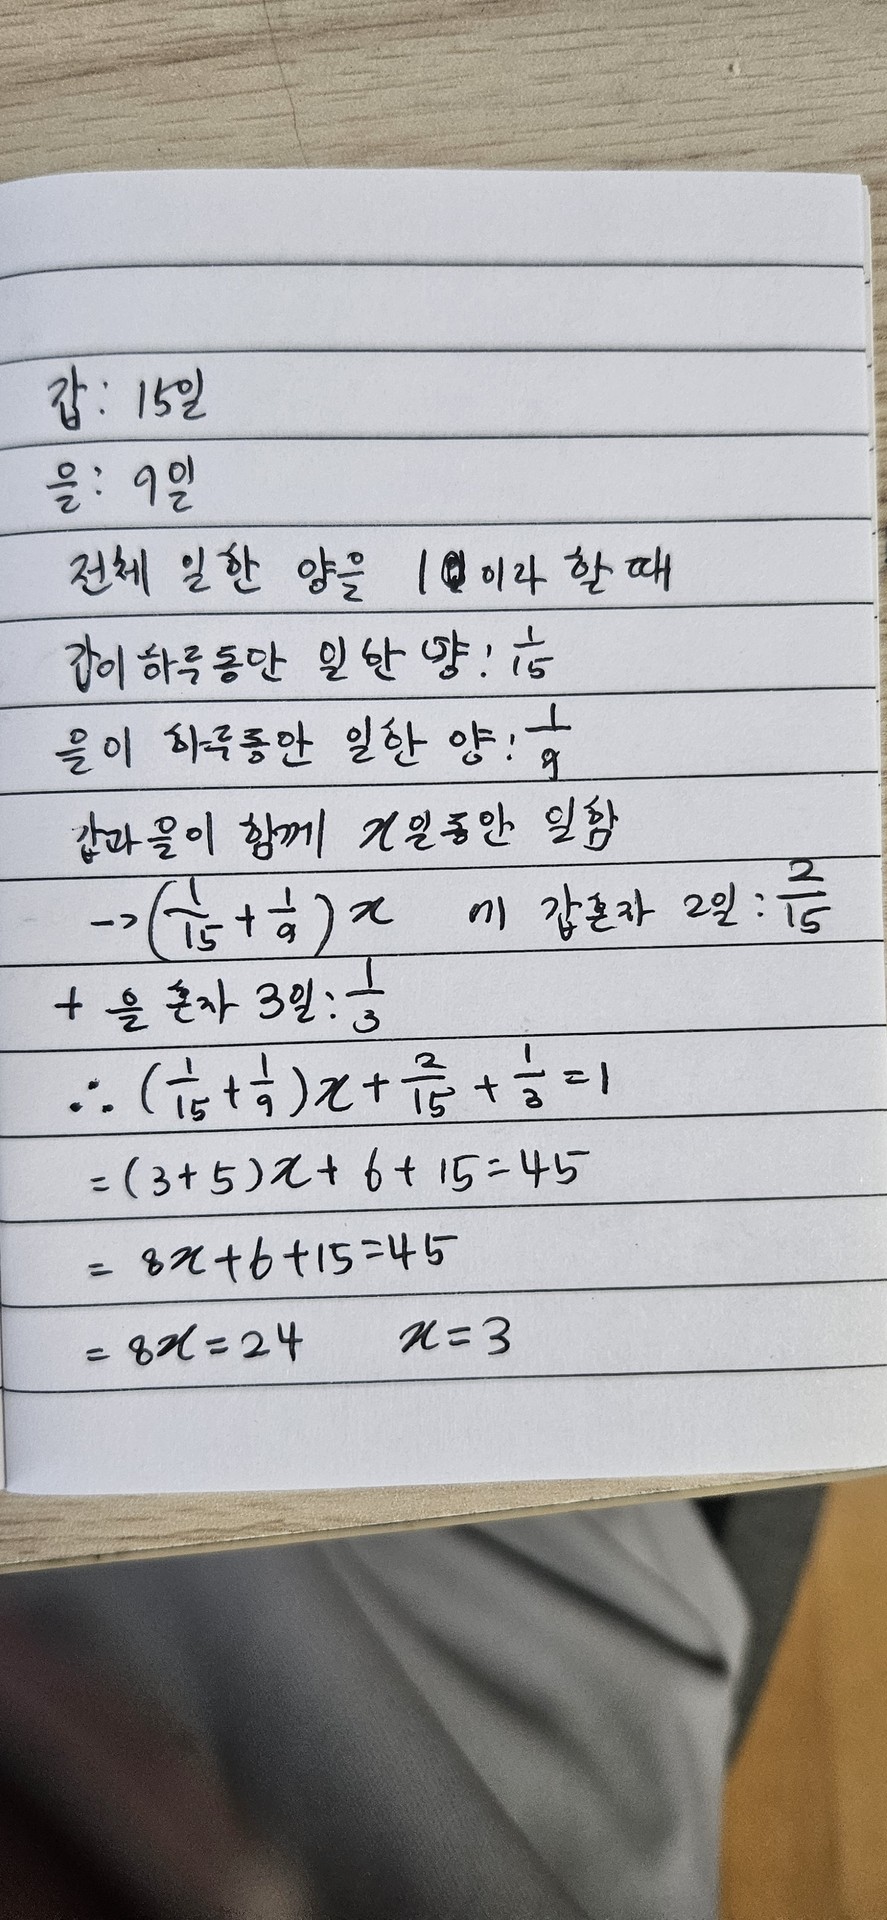 갑: 15일
을: 9일
전체 일한 양을 1이라 할 때
갑이 하루동안 일한 양: 1/15
을이 하루동안 일한 양: 1/9
갑과 을이 함께 x일동안 일함
→ (1/15 + 1/9) x 에 갑혼자 2일: 2/15
+ 을 혼자 3일: 1/3
∴ (1/15 + 1/9) x + 2/15 + 1/3 = 1
= (3+5)x + 6 + 15 = 45
= 8x + 6 + 15 = 45
= 8x = 24 x = 3